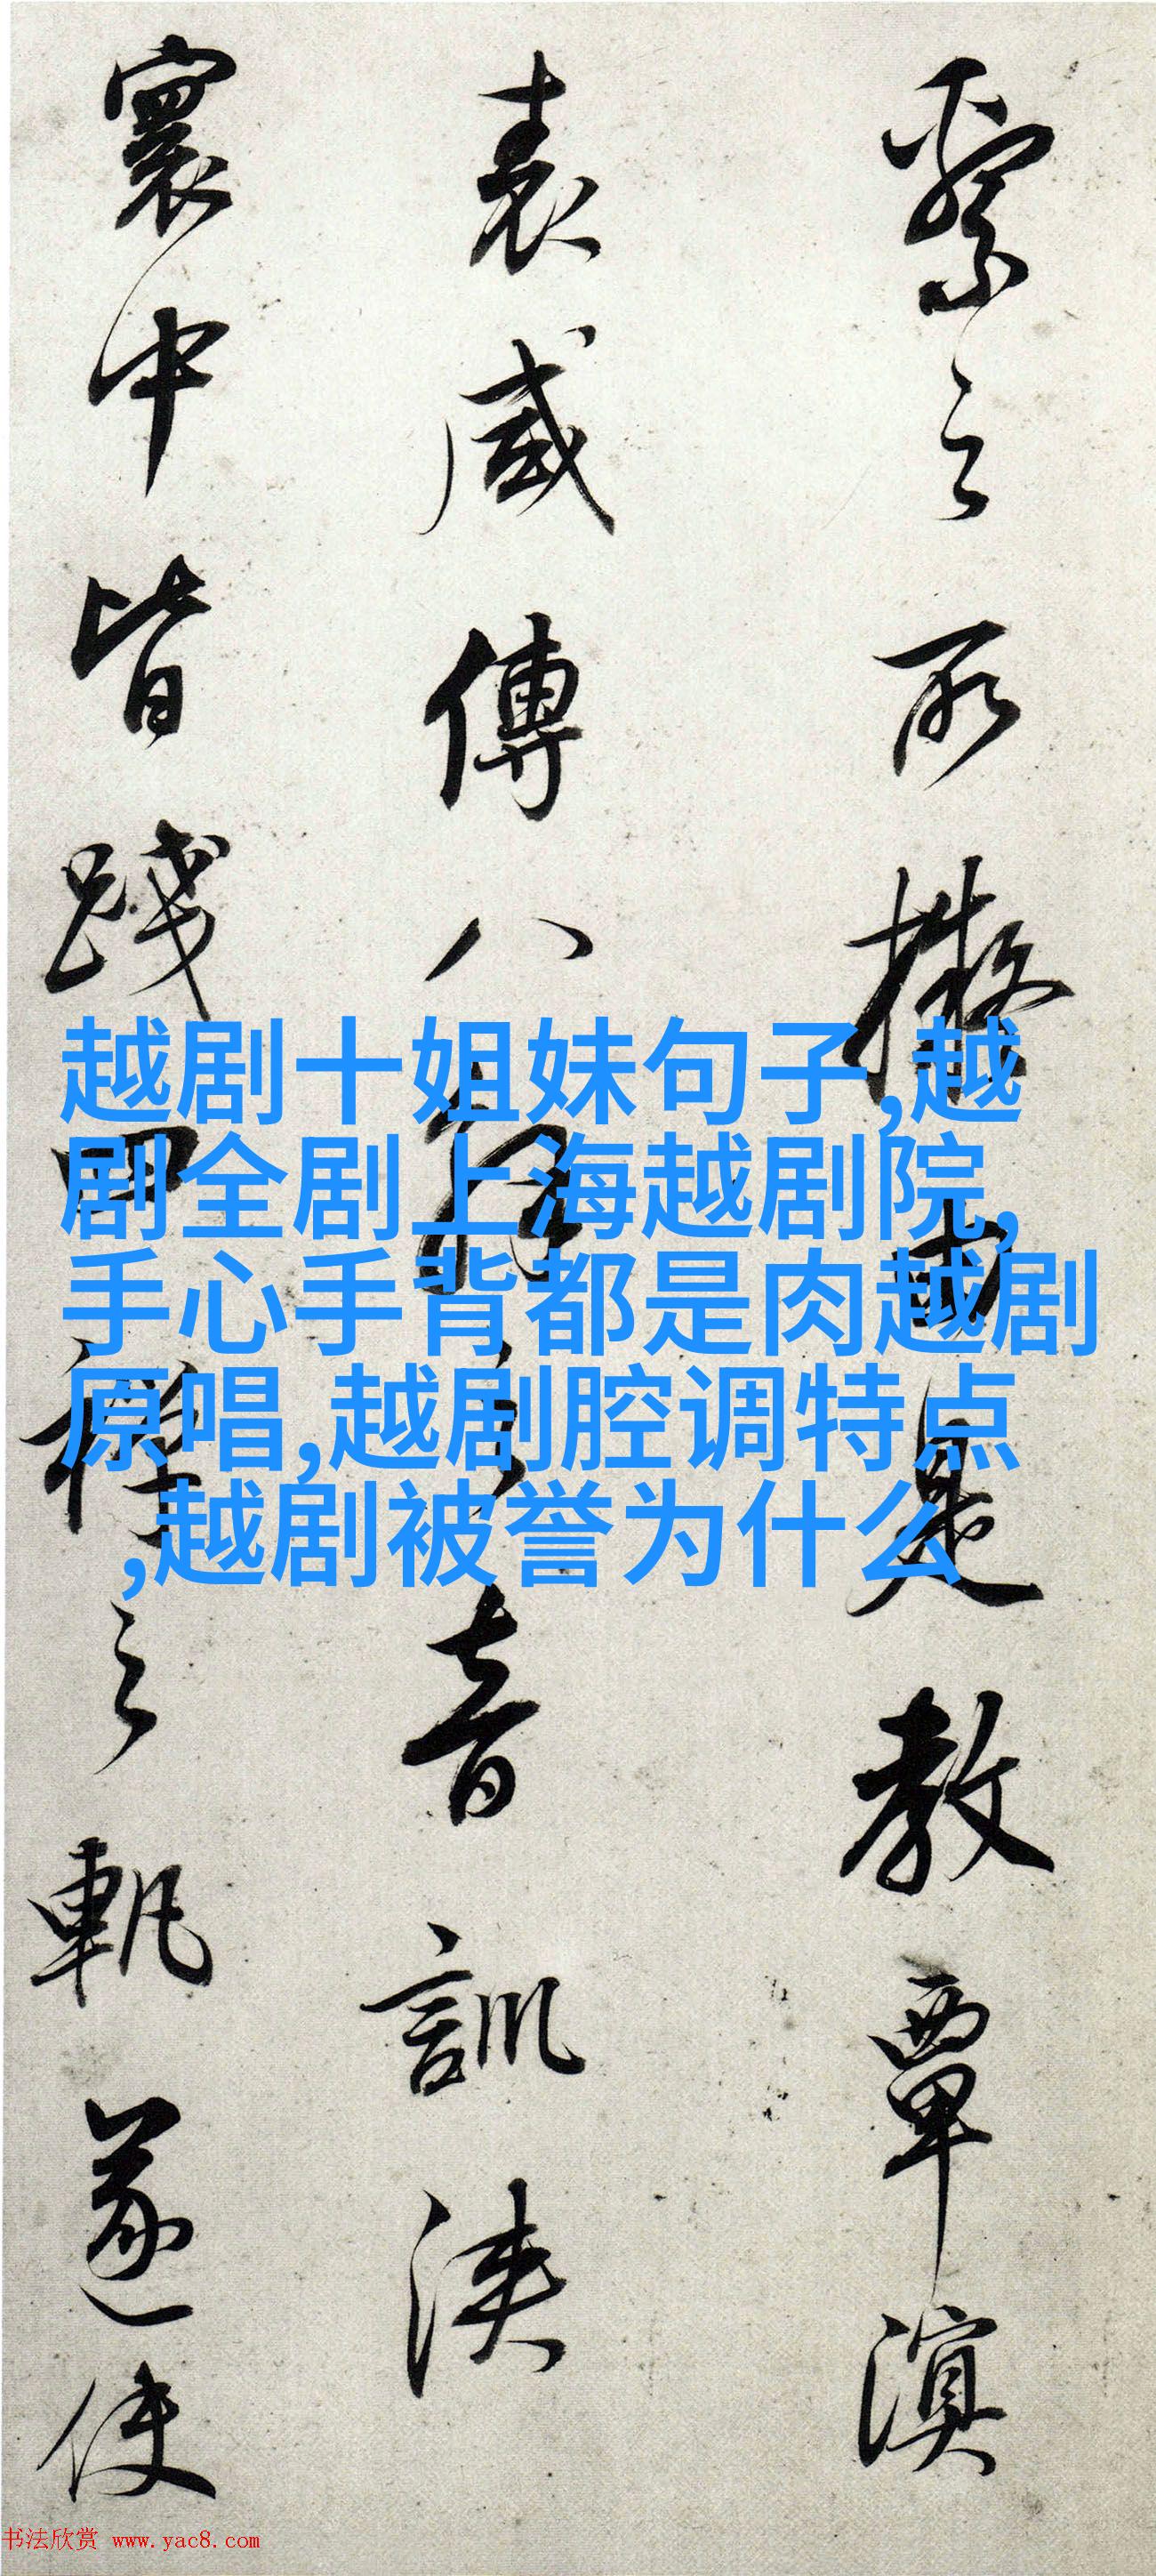 之所是教覃溟
表咸傳八之音訓浹
寰中皆踐四禪之軌遂使
越剧十姐妹句子,越
剧全剧上海越剧院,
手心手背都是肉越剧
原唱,越剧腔调特点
,越剧被誉为什么
书法欣赏 www.yac8.com